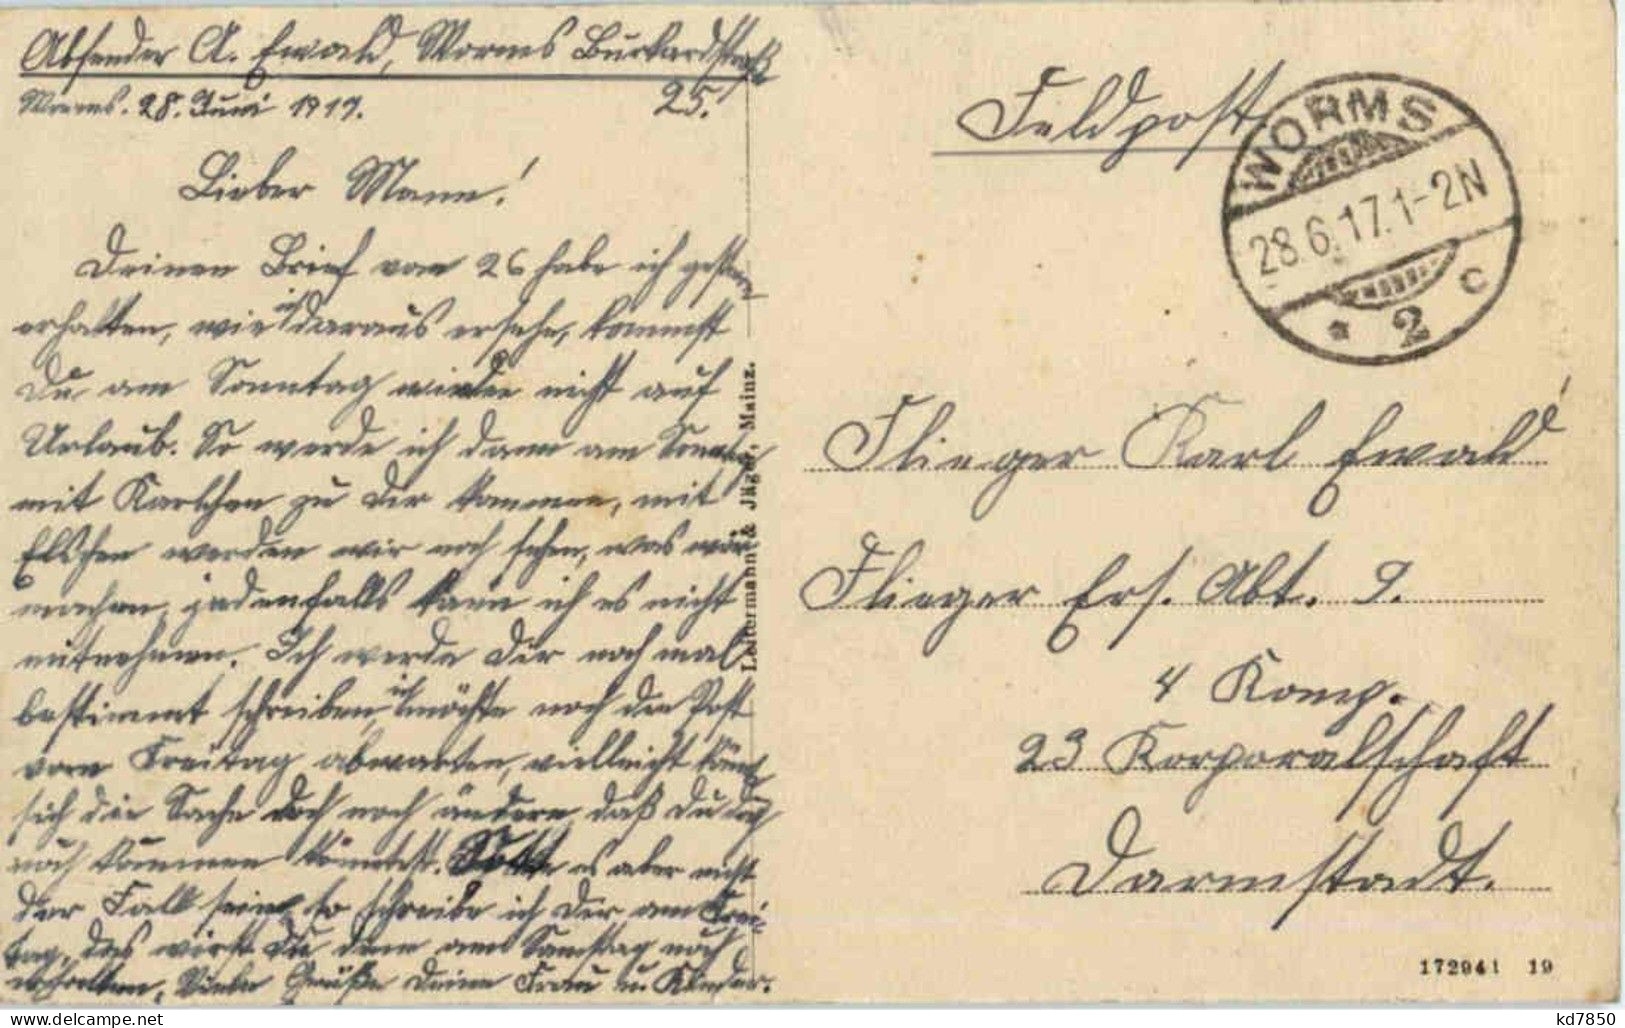 Absender A. Ewald, Worms Burkardstraße
25.
Worms. 28. Juni 1917.
Lieber Mann!
Deinen Brief vom 26 habe ich gestern
erhalten, wie ich daraus ersehe, kommst
Du am Sonntag wieder nicht auf
Urlaub. So werde ich dann am Sonntag
mit Karlchen zu Dir kommen, mit
Elschen werden wir noch sehen, was wir
machen, jedenfalls kann ich es nicht
mitnehmen. Ich werde Dir noch mal
bestimmt schreiben, ich möchte noch die Post
vom Freitag abwarten, vielleicht könnte
sich die Sache doch noch ändern, daß Du doch
noch kommen könntest. Sollte es aber nicht
der Fall sein, so schreibe ich Dir am Frei-
tag, das wirst Du dann am Samstag noch
erhalten, Viele Grüße Deine Frau u. Kinder.
Leitermann & Jäger, Mainz.
Feldpost
WORMS
28.6.17.1-2N
* 2 c
Flieger Karl Ewald
Flieger Ers. Abt. 9.
4 Komp.
23 Korporalschaft
Darmstadt.
172941 19
kd7850